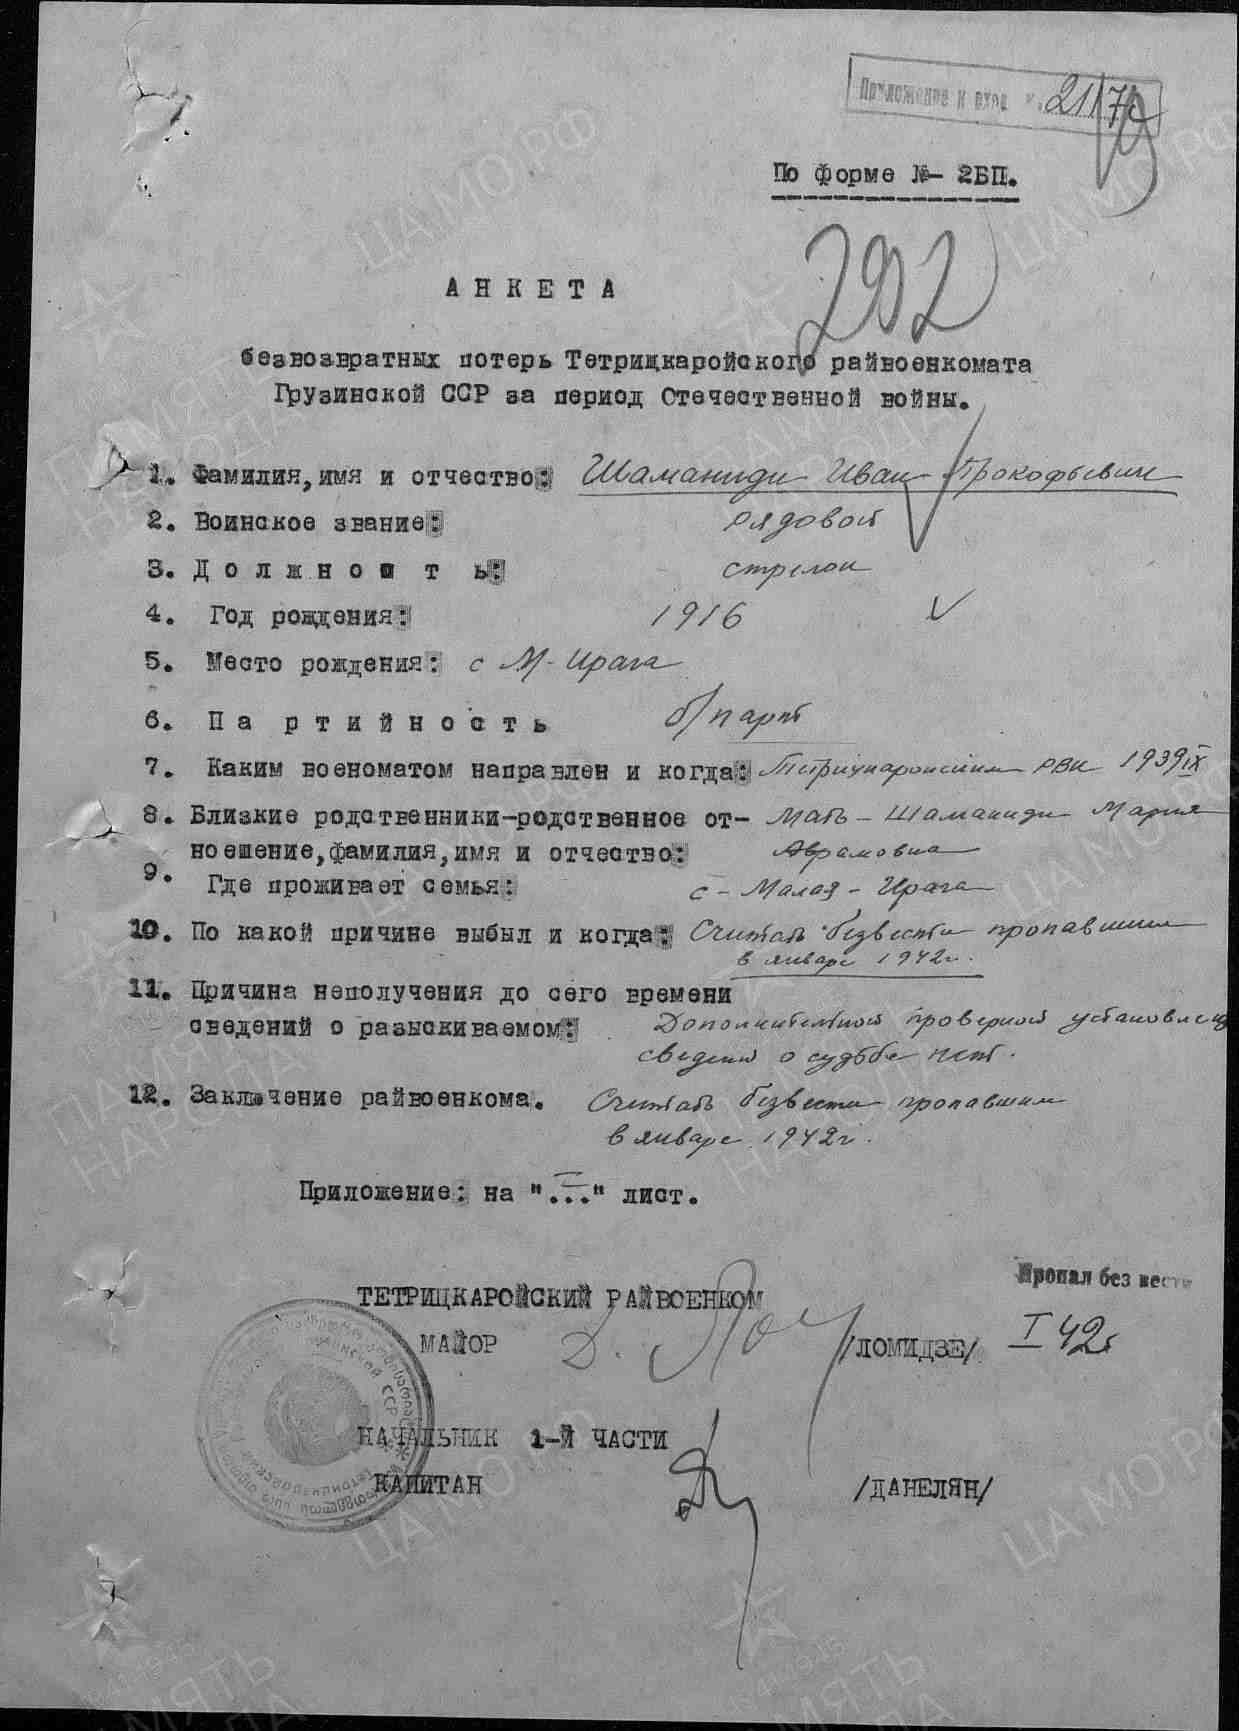 Приложение к вход. №. 21174
По форме №- 2БП.
292
АНКЕТА
безвозвратных потерь Тетрицкаройского райвоенкомата
Грузинской ССР за период Отечественной войны.
1. Фамилия, имя и отчество: Шаманиди Иван Прокофьевич
2. Воинское звание: рядовой
3. Должность: стрелок
4. Год рождения: 1916
5. Место рождения: с М-Ирага
6. Партийность б/парт
7. Каким военоматом направлен и когда: Тетрицкаройским РВК 1939 IX
8. Близкие родственники-родственное от- Мать - Шаманиди Мария
ношение, фамилия, имя и отчество: Аврамовна
9. Где проживает семья: с - Малая - Ирага
10. По какой причине выбыл и когда: Считать безвести пропавшим
в январе 1942г.
11. Причина неполучения до сего времени
сведений о разыскиваемом: Дополнительной проверкой установлено
сведений о судьбе нет.
12. Заключение райвоенкома. Считать безвести пропавшим
в январе 1942г.
Приложение: на "..." лист.
Пропал без вести
I 42г
ТЕТРИЦКАРОЙСКИЙ РАЙВОЕНКОМ
МАЙОР /ЛОМИДЗЕ/
НАЧАЛЬНИК 1-Й ЧАСТИ
КАПИТАН /ДАНЕЛЯН/
ЦА МО.РФ
ПАМЯТЬ НАРОДА
1941-1945